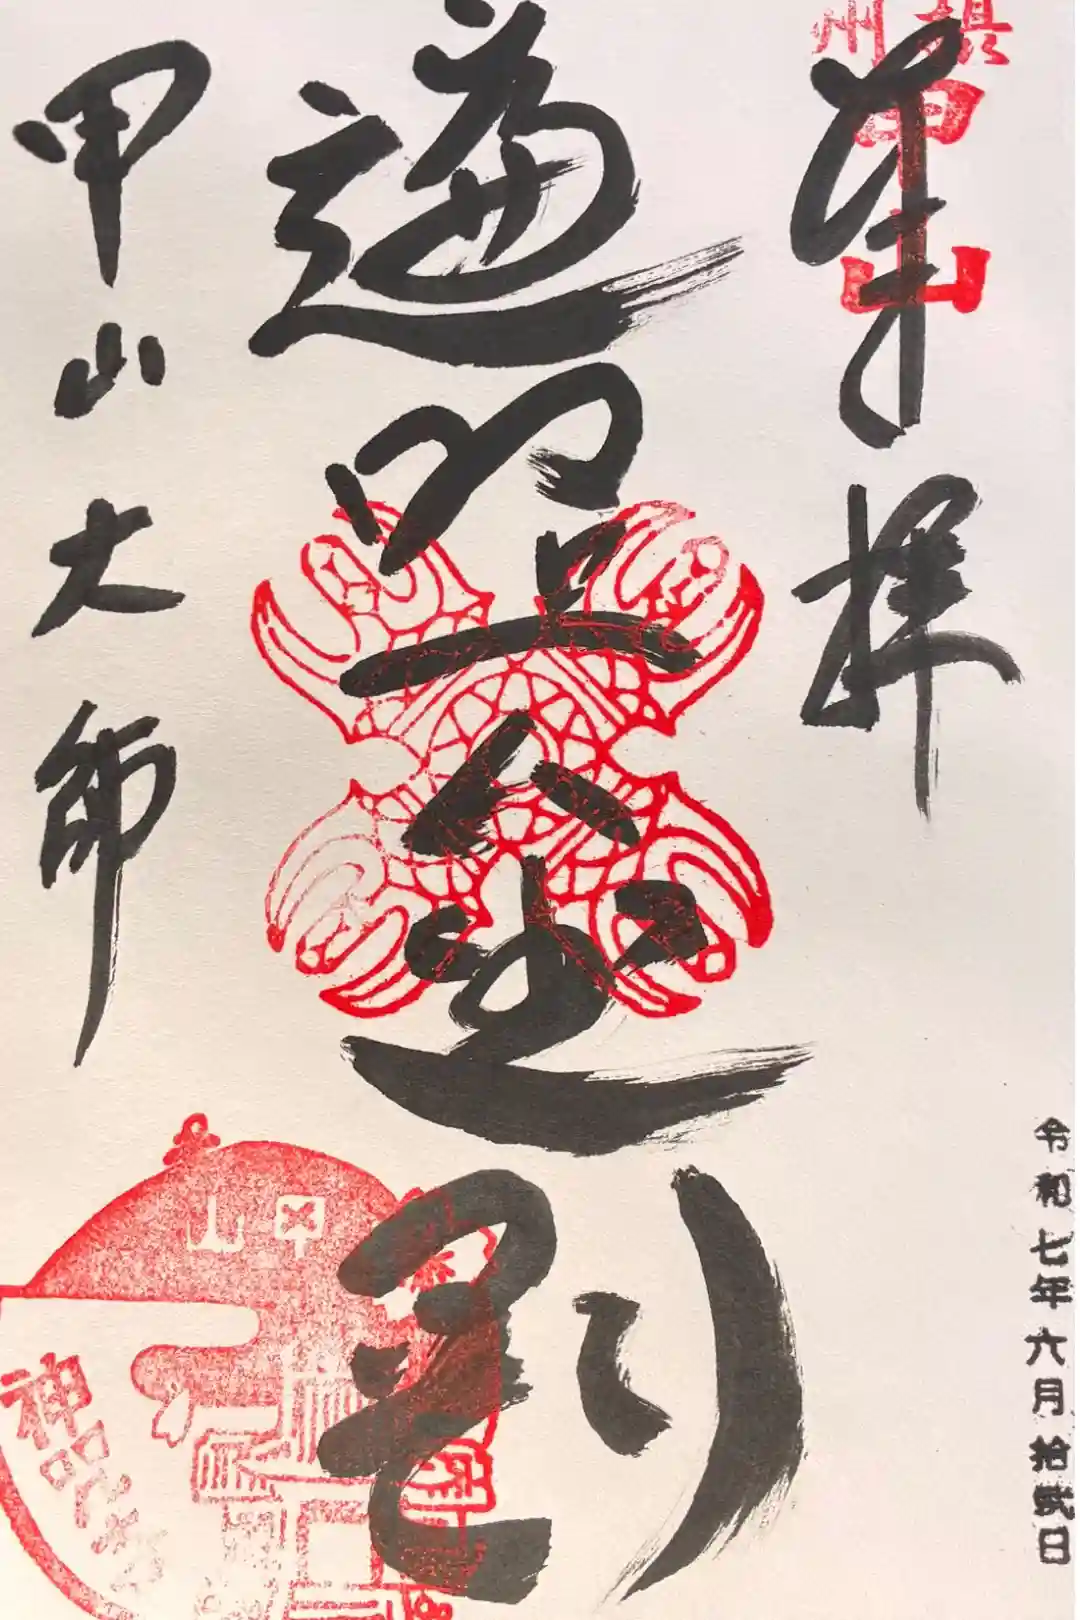 甲山
奉拝
令和七年六月拾弐日
遍照金剛
甲山大師
甲山
神呪寺